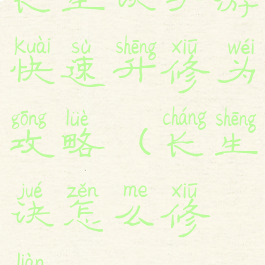 长生诀手游
kuài sù shēng xiū wéi
快速升修为
gōng lüè cháng shēng
攻略（长生
jué zěn me xiū
诀怎么修
liàn